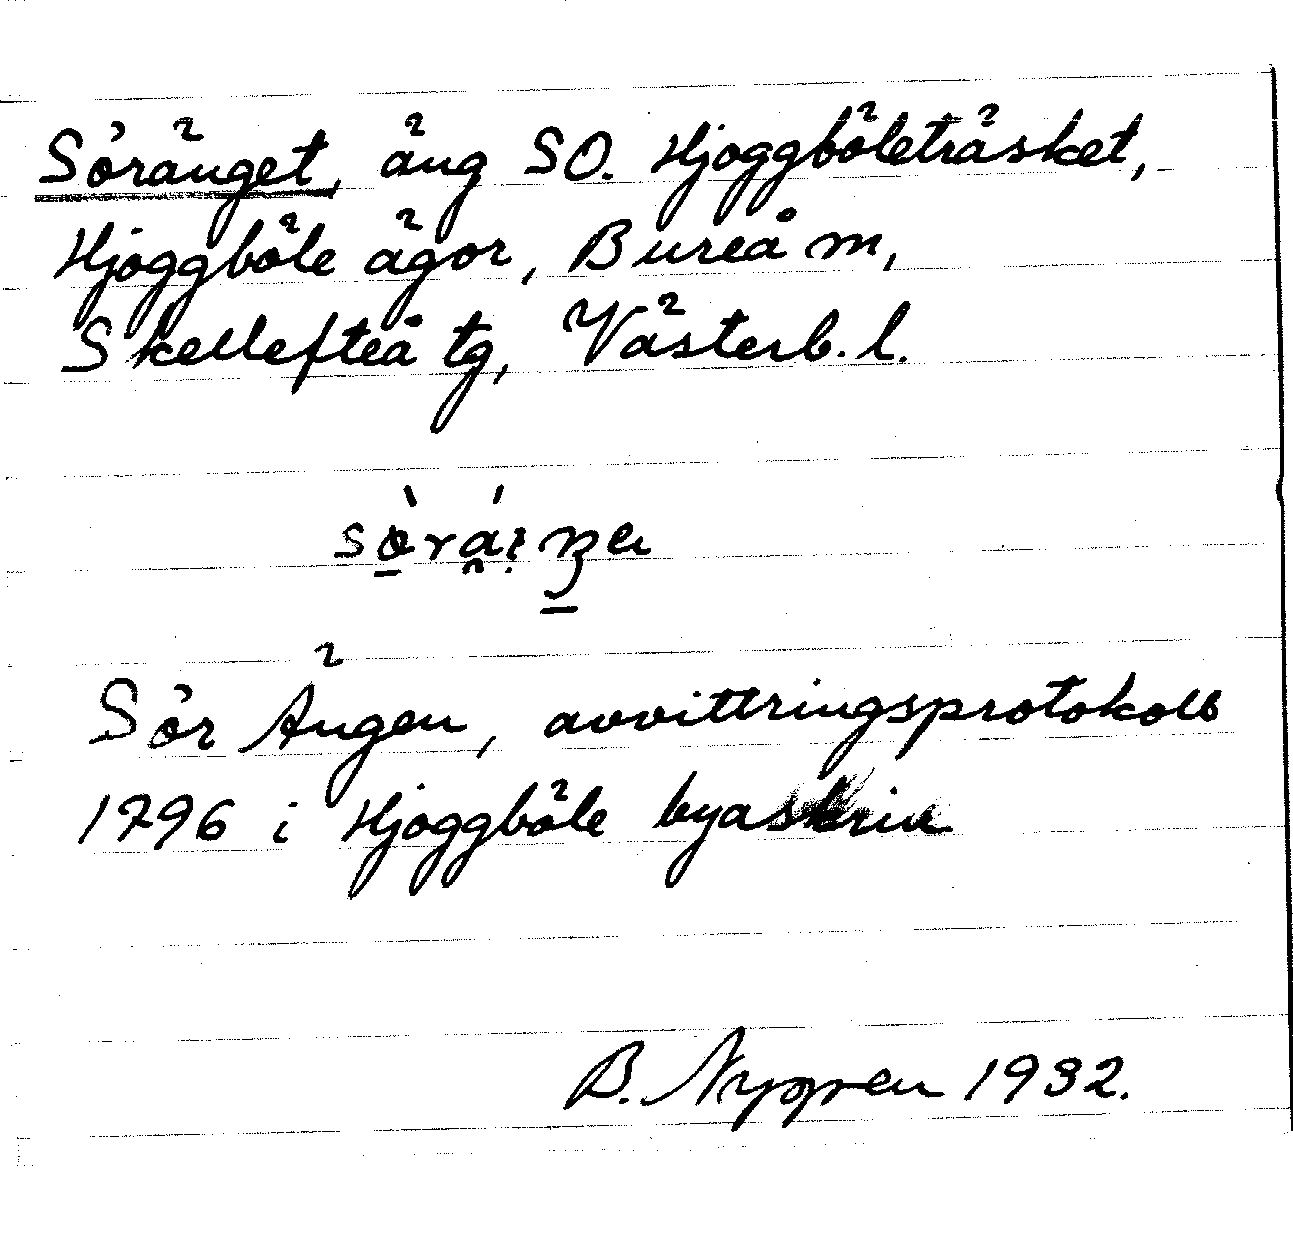 Söränget, äng SO. Hjoggböleträsket,
Hjoggböle ägor, Bureå m,
Skellefteå tg, Västerb. l.
Sör Ängen, avvittringsprotokoll
1796 i Hjoggböle byaskrin
B. Nygren 1932.